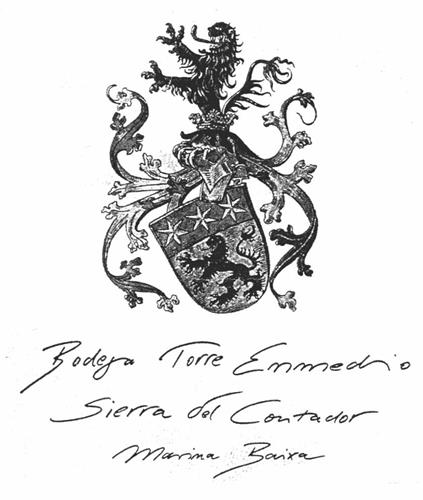 Bodega Torre Enmedio
Sierra del Contador
Marina Baixa